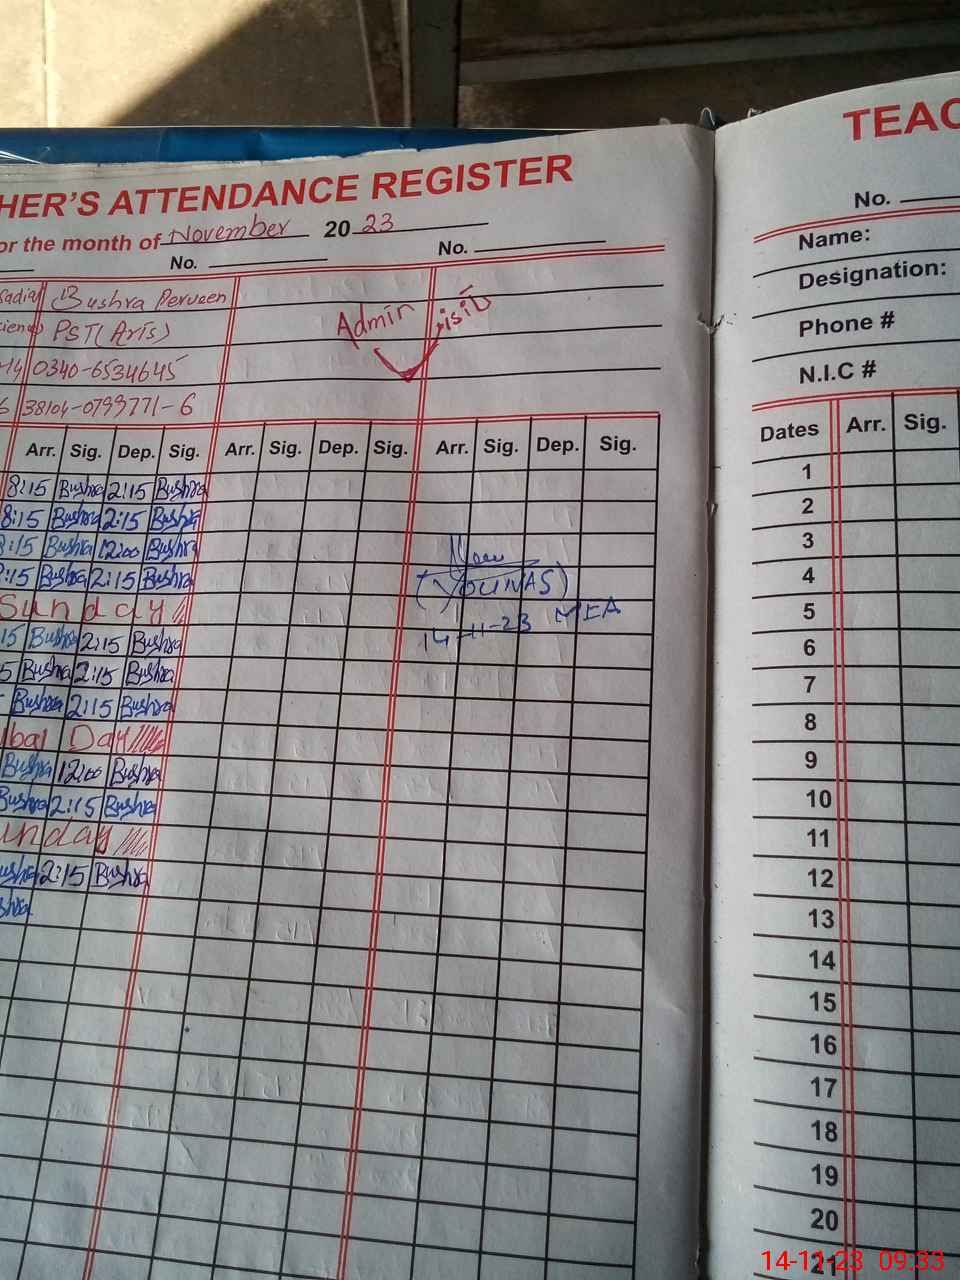 HER'S ATTENDANCE REGISTER
or the month of November 2023
No. No.
Bushra Perveen
PST(Aris)
0340-6534645
6 38104-0799771-6
Admin Visit
Arr. Sig. Dep. Sig. Arr. Sig. Dep. Sig. Arr. Sig. Dep. Sig.
8:15 Bushra 2:15 Bushra
8:15 Bushra 2:15 Bushra
:15 Bushra 12:00 Bushra
:15 Bushra 2:15 Bushra
Sunday
15 Bushra 2:15 Bushra
5 Bushra 2:15 Bushra
Bushra 2:15 Bushra
bal Day
Bushra 12:00 Bushra
Bushra 2:15 Bushra
unday
ushra 2:15 Bushra
shra
(YOUNAS)
MEA
14-11-23
TEAC
No.
Name:
Designation:
Phone #
N.I.C #
Dates Arr. Sig.
1
2
3
4
5
6
7
8
9
10
11
12
13
14
15
16
17
18
19
20
21
14-11-23 09:33